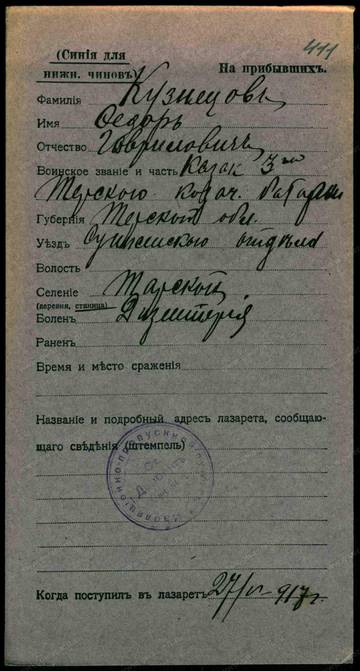 411
(Синія для
нижн. чиновъ) На прибывшихъ.
Фамилія Кузнецовъ
Имя Ѳедоръ
Отчество Гавриловичъ
Воинское званіе и часть Казак 3го
Терского казач. батареи
Губернія Терской обл.
Уѣздъ Сунженскаго отдѣла
Волость
Селеніе Тарской
(деревня, станица)
Боленъ Дизентерія
Раненъ
Время и мѣсто сраженія
Названіе и подробный адресъ лазарета, сообщаю-
щаго свѣдѣнія (штемпель)
Когда поступилъ въ лазаретъ 27/VI 917 г.